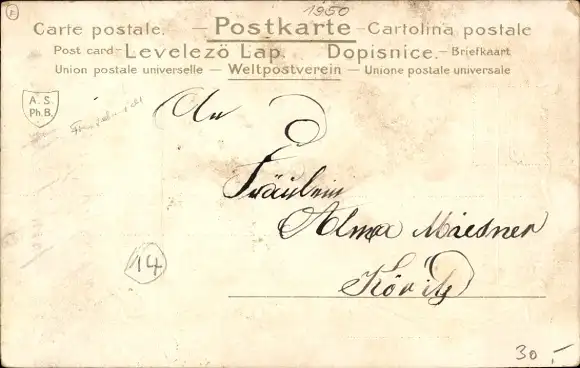 F
1950
Carte postale. — Postkarte — Cartolina postale
Post card — Levelezö Lap. Dopisnice. — Briefkaart
Union postale universelle — Weltpostverein — Unione postale universale
A. S.
Ph. B.
An
Fräulein
Alma Miesner
Köritz
14
30,-